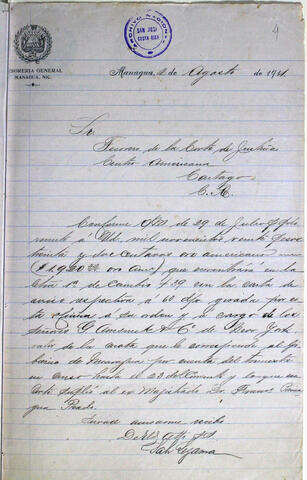 ARCHIVO NACIONAL
SAN JOSE
COSTA RICA
4
TESORERIA GENERAL
MANAGUA, NIC.
Managua, 2 de Agosto de 1911.
Sr.
Tesorero de la Corte de Justicia
Centro Americana
Cartago
C. R.
Conforme de 29 de Julio
á Ud. mil novecientos veinte pesos
y dos centavos oro americano
oro am.) que encontrará en la
1ª de Cambio 439 con la carta de
aviso respectiva á 60 d/v girada por
á su orden y á cargo de los
Señores G. Amsinck & Cº de New York
valor de la cuota que le corresponde al Go-
bierno de Nicaragua por cuenta del
en curso hasta el 23 del y lo que
suplió al ex Magistrado Dn. Franco. Pania-
gua Prado.
Sírvase avisarme recibo.
De Ud. Atto. S. S.